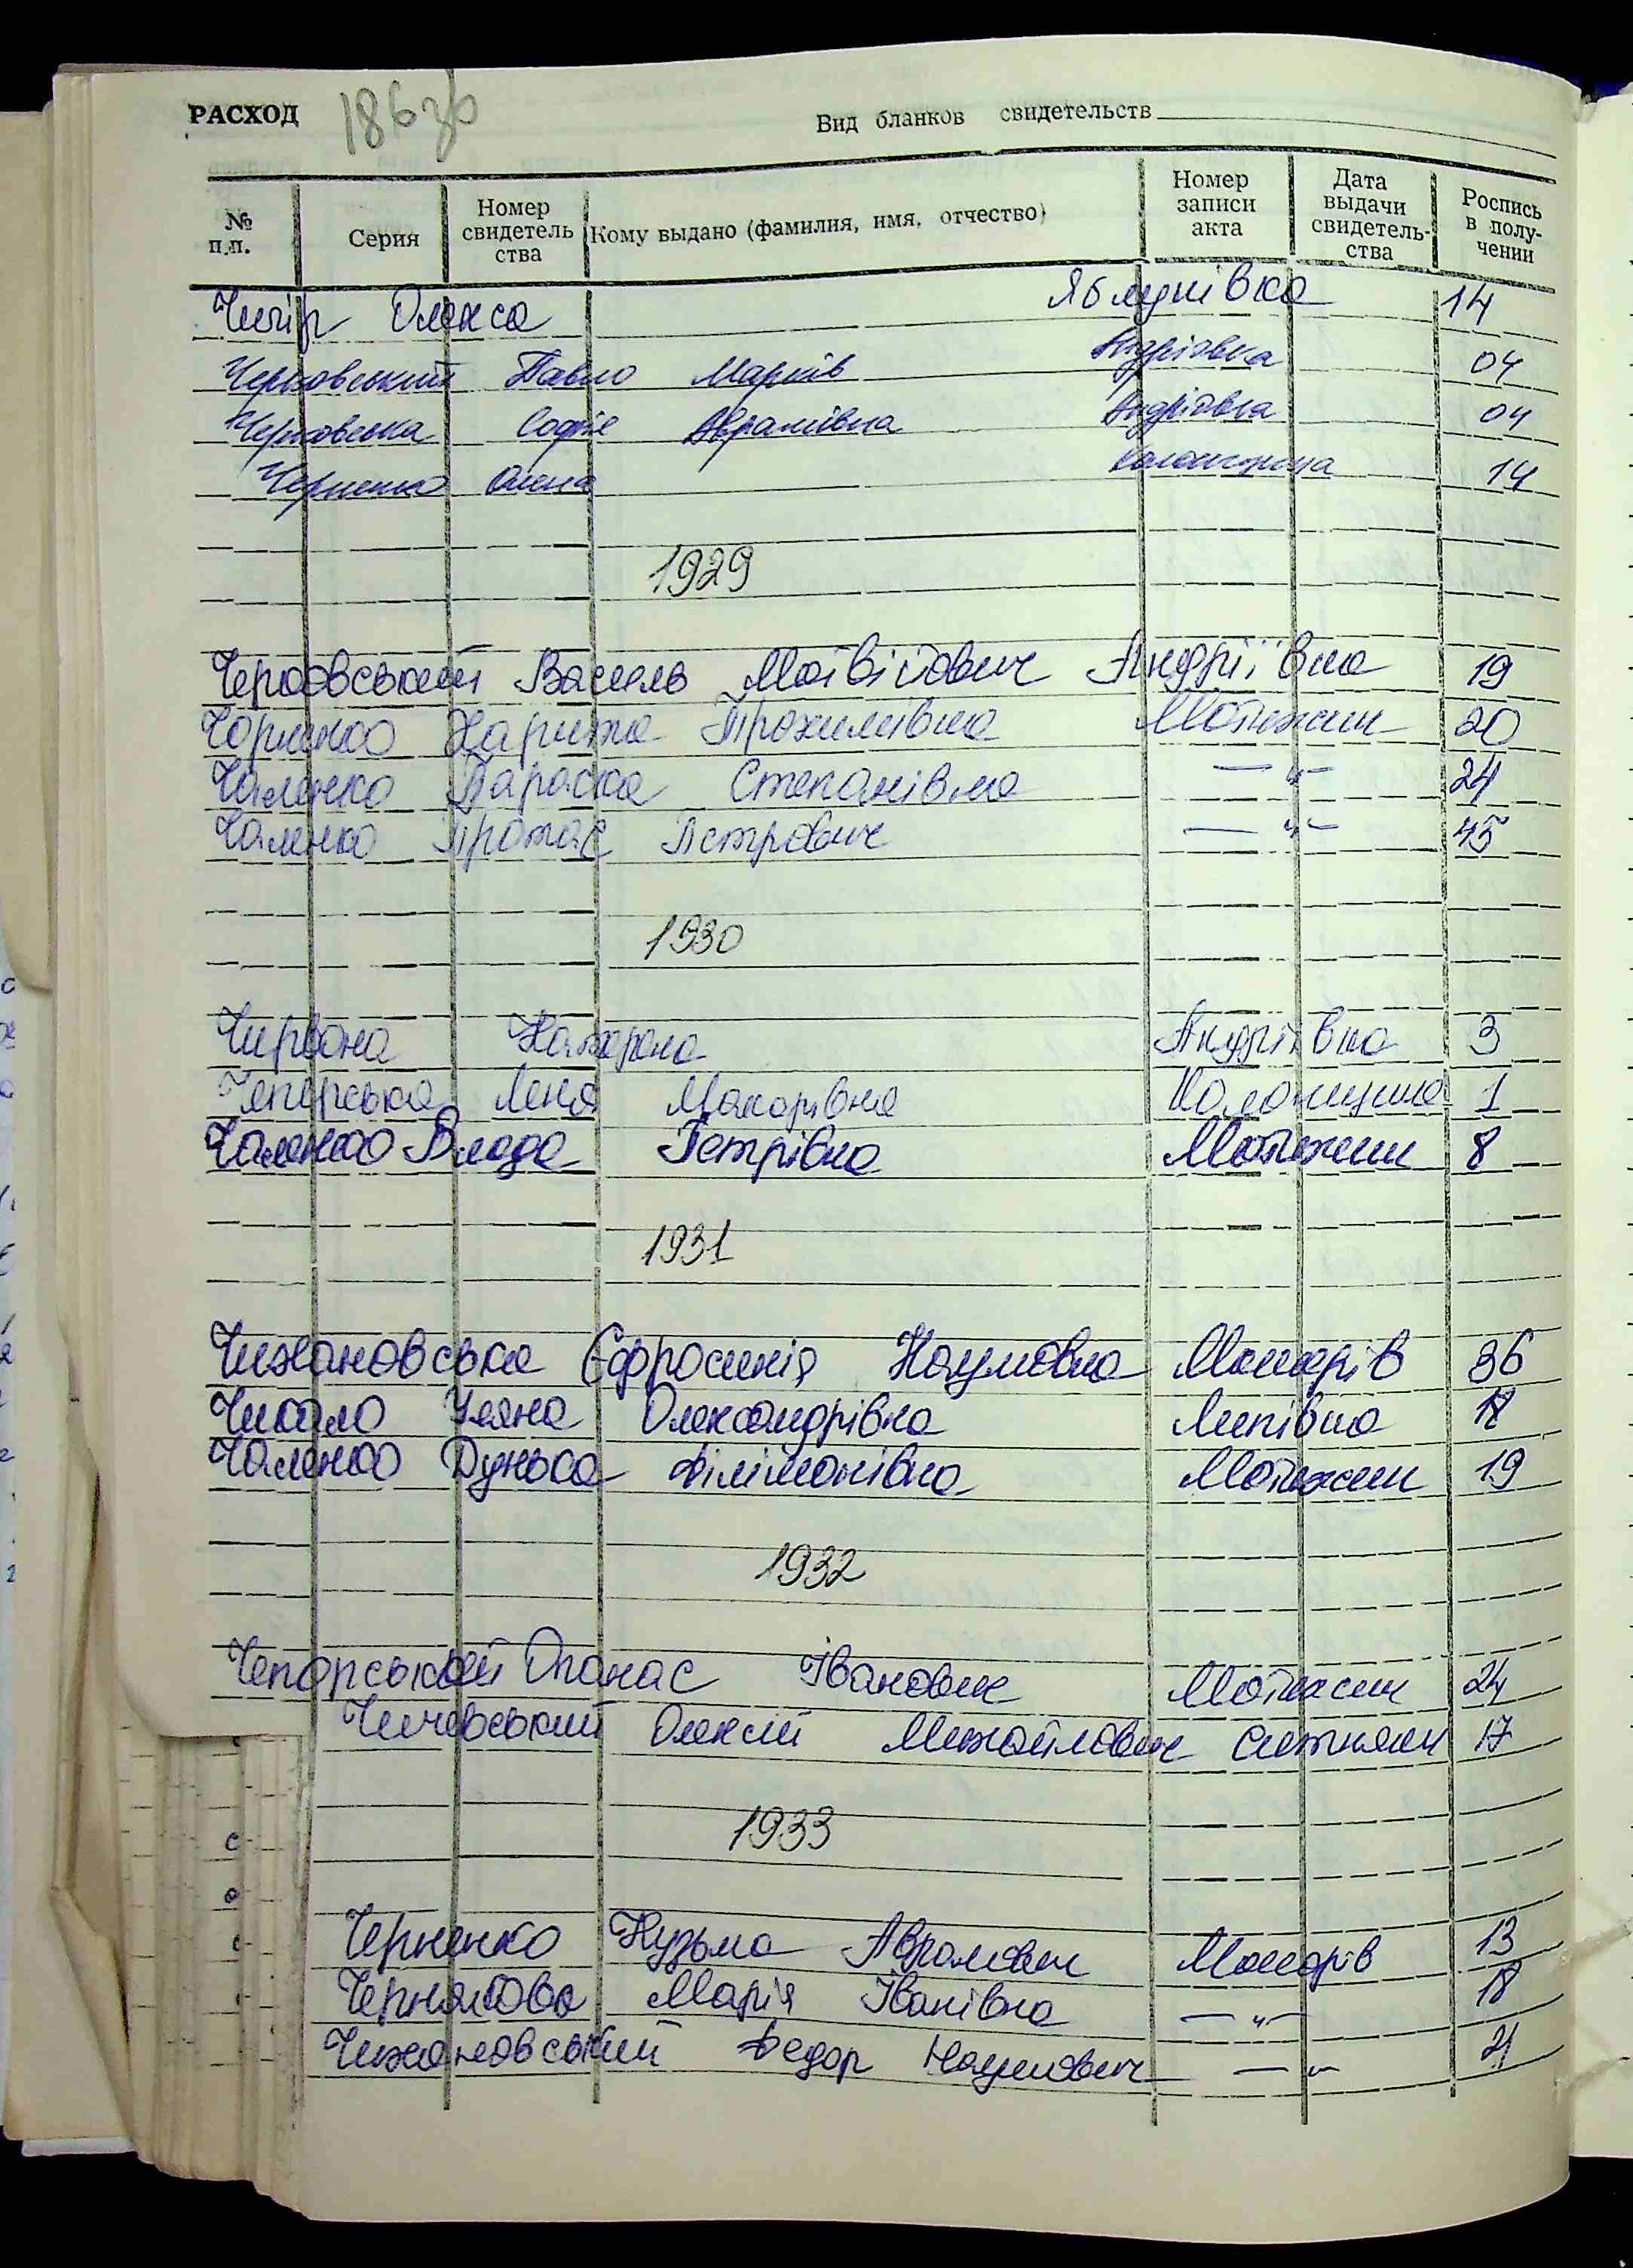 РАСХОД 186зв Вид бланков свидетельств
№ п.п. Серия Номер свидетель ства Кому выдано (фамилия, имя, отчество) Номер записи акта Дата выдачи свидетель- ства Роспись в полу- чении
Чигір Олекса Яблунівка 14
Павло Марків Андріївка 04
Софія Аврамівна Андріївка 04
Черненко Олена 14
1929
Василь Матвійович Андріївка 19
Чорненко Харитя Трохимівна Мотижин 20
Чаленко Параска Степанівна — " — 24
Чаленко Протас Петрович — " — 45
1930
Червона Андріївка 3
Чепорська Леня Макарівна Колонщина 1
Чаленко Влада Петрівна Мотижин 8
1931
Чижановська Єфросинія Наумовна Макарів 36
Чикало Уляна Олександрівна Липівка 18
Чаленко Дунька Філімонівна Мотижин 19
1932
Чепорський Опанас Іванович Мотижин 24
Чичевський Олексій Михайлович Ситняки 17
1933
Черненко Кузьма Аврамович Макарів 13
Чернякова Марія Іванівна — " — 18
Чижановський Федор Наумович — " — 21